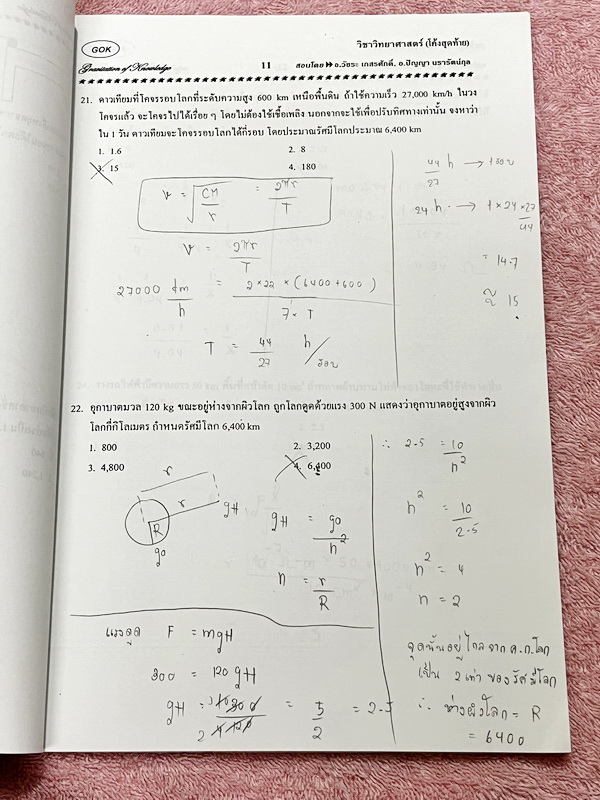 GOK
วิชาวิทยาศาสตร์ (โค้งสุดท้าย)
Gravitation of Knowledge
11
สอนโดย อ.วัชระ เกสรศักดิ์, อ.ปัญญา นรารัตน์กุล
21. ดาวเทียมที่โคจรรอบโลกที่ระดับความสูง 600 km เหนือพื้นดิน ถ้าใช้ความเร็ว 27,000 km/h ในวง
โคจรแล้ว จะโคจรไปได้เรื่อย ๆ โดยไม่ต้องใช้เชื้อเพลิง นอกจากจะใช้เพื่อปรับทิศทางเท่านั้น จงหาว่า
ใน 1 วัน ดาวเทียมจะโคจรรอบโลกได้กี่รอบ โดยประมาณรัศมีโลกประมาณ 6,400 km
1. 1.6
2. 8
3. 15
4. 180
v = √GM/r = 2πr/T
v = 2πr/T
27000 km/h = 2×22×(6400+600)/7×T
T = 44/27 h/รอบ
44/27 h → 1 รอบ
24 h → 1×24×27/44
= 14.7
≈ 15
22. อุกาบาตมวล 120 kg ขณะอยู่ห่างจากผิวโลก ถูกโลกดูดด้วยแรง 300 N แสดงว่าอุกาบาตอยู่สูงจากผิว
โลกกี่กิโลเมตร กำหนดรัศมีโลก 6,400 km
1. 800
2. 3,200
3. 4,800
4. 6,400
r
r
gH
R
g0
gH = g0/n²
n = r/R
แรงดูด F = mgH
300 = 120 gH
gH = 300/120 = 5/2 = 2.5
∴ 2.5 = 10/n²
n² = 10/2.5
n² = 4
n = 2
จุดนั้นอยู่ไกลจาก ศ.ก. โลก
เป็น 2 เท่า ของรัศมีโลก
∴ ห่างผิวโลก = R
= 6400